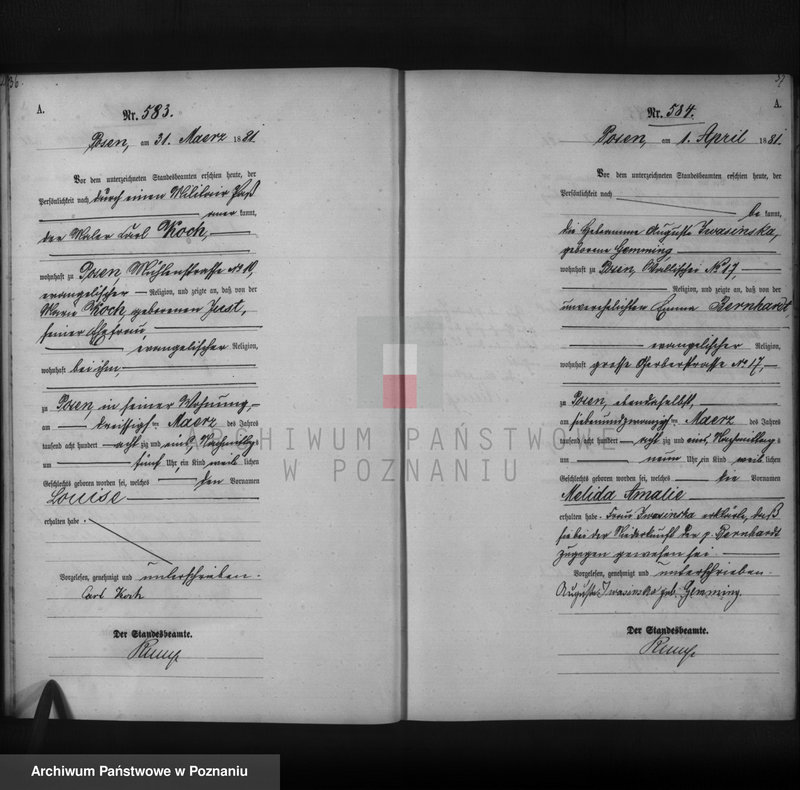 36
A.
Nr. 583.
Posen, am 31. Maerz 1881
Vor dem unterzeichneten Standesbeamten erschien heute, der
Persönlichkeit nach durch einen Militair Paß
aner kannt,
der Maler Carl Koch,
wohnhaft zu Posen, Mühlenstrasse No
evangelischer Religion, und zeigte an, daß von der
Marie Koch, geborenen Just,
seiner Ehefrau,
evangelischer Religion,
wohnhaft bei ihm,
zu Posen in seiner Wohnung,
am dreissigsten Maerz des Jahres
tausend acht hundert acht zig und eins, Nachmittags
um fünf Uhr, ein Kind weib lichen
Geschlechts geboren worden sei, welches den Vornamen
Louise
erhalten habe.
Vorgelesen, genehmigt und unterschrieben.
Carl Koch
Der Standesbeamte.
37
A.
Nr. 584.
Posen, am 1. April 1881.
Vor dem unterzeichneten Standesbeamten erschien heute, der
Persönlichkeit nach
be kannt,
die Hebamme Auguste Iwasinska,
geborene Gemming,
wohnhaft zu Posen, Wallischei No 17,
Religion, und zeigte an, daß von der
unverehelichten Emma Bernhardt,
evangelischer Religion,
wohnhaft grosse Gerberstrasse No 17,
zu Posen, ebendaselbst,
am siebenundzwanzigsten Maerz des Jahres
tausend acht hundert acht zig und eins, Nachmittags
um neun Uhr, ein Kind weib lichen
Geschlechts geboren worden sei, welches die Vornamen
Melida Amalie
erhalten habe. Frau Iwasinska erklärte, daß
sie bei der Niederkunft der p. Bernhardt
zugegen gewesen sei.
Vorgelesen, genehmigt und unterschrieben.
Auguste Iwasinska geb. Gemming.
Der Standesbeamte.
ARCHIWUM PAŃSTWOWE
W POZNANIU
Archiwum Państwowe w Poznaniu